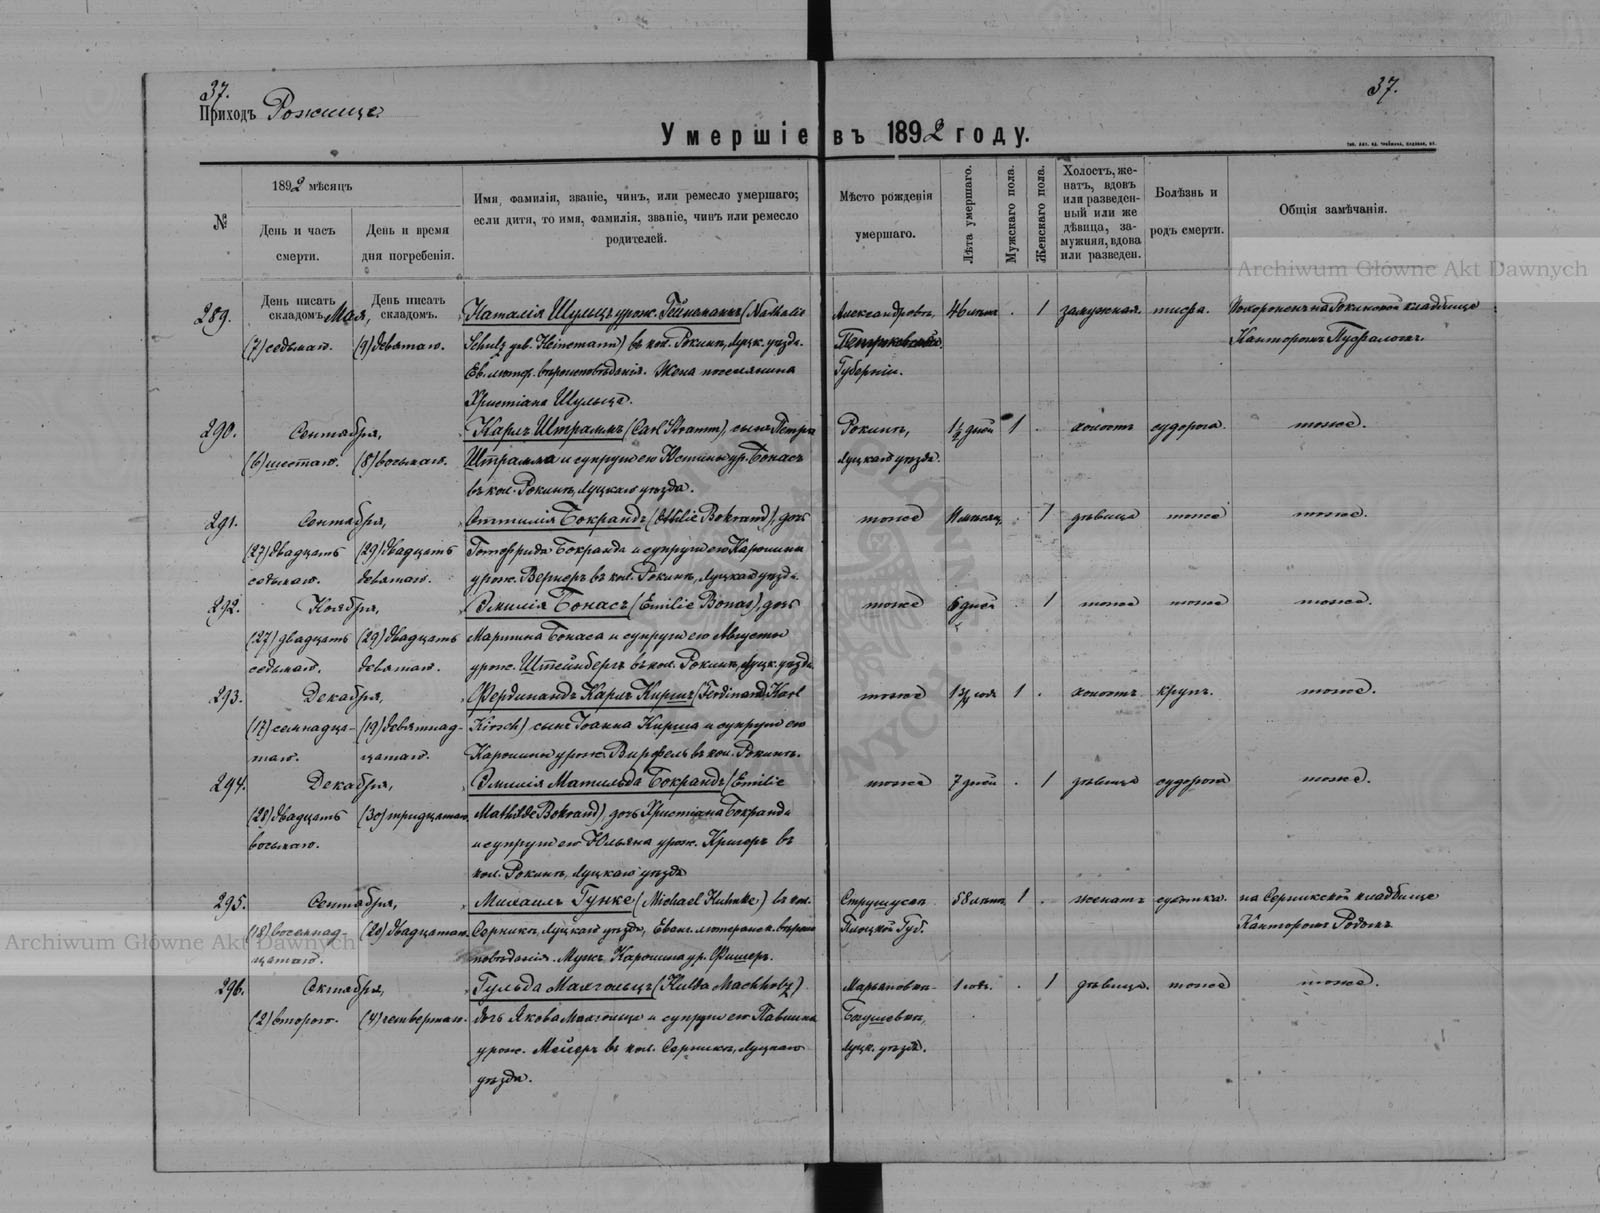 37.
37.
Приходъ Рожище
Умершіе въ 1892 году.
№
1892 мѣсяцъ
День и часъ смерти.
День и время дня погребенія.
Имя, фамилія, званіе, чинъ, или ремесло умершаго;
если дитя, то имя, фамилія, званіе, чинъ или ремесло
родителей.
Мѣсто рожденія
умершаго.
Лѣта умершаго.
Мужскаго пола.
Женскаго пола.
Холостъ, же-
натъ, вдовъ
или разведен-
ный или же
дѣвица, за-
мужняя, вдова
или разведен.
Болѣзнь и
родъ смерти.
Общія замѣчанія.
Archiwum Główne Akt Dawnych
День писать складомъ
Мая,
День писать складомъ.
289.
(7) седьмаго.
(9) девятаго.
Наталія Шульцъ урож. Гейнеманъ (Nathalie
Schulz geb. Heinemann) въ кол. Рокинъ, Луцк. уѣзда.
Ев. лютер. вѣроисповѣданія. Жена поселянина
Христіана Шульца.
Александровъ,
Петроковской
Губерніи.
46 лѣтъ
.
1
замужняя.
тифъ.
Похороненъ на Рокинской кладбищѣ
Канторомъ
290.
Сентября,
(6) шестаго.
(8) восьмаго.
Карлъ Штраммъ (Carl Stramm), сынъ Петра
Штрамма и супруги его Юстины ур. Бонасъ
въ кол. Рокинъ, Луцкаго уѣзда.
Рокинъ,
Луцкаго уѣзда.
1½ дней
1
.
холостъ
судорога.
тоже.
291.
Сентября,
(27) двадцать
седьмаго.
(29) двадцать
девятаго.
Оттилія Бокрандъ (Ottilie Bokrand), дочь
Готфрида Бокранда и супруги его Каролины
урож. Вернеръ въ кол. Рокинъ, Луцкаго уѣзда.
тоже
11 мѣсяц.
.
1
дѣвица
тоже
тоже.
292.
Ноября,
(27) двадцать
седьмаго.
(29) двадцать
девятаго.
Эмилія Бонасъ (Emilie Bonas), дочь
Мартина Бонаса и супруги его Августы
урож. Штейнбергъ въ кол. Рокинъ, Луцк. уѣзда.
тоже
6 дней
.
1
тоже
тоже
тоже.
293.
Декабря,
(17) семнадца-
таго.
(19) девятнад-
цатаго.
Фердинандъ Карлъ Киршъ (Ferdinand Karl
Kirsch) сынъ Іоанна Кирша и супруги его
Каролины урож. Вирфель въ кол. Рокинъ.
тоже
1 ¾ года
1
.
холостъ
крупъ.
тоже.
294.
Декабря,
(28) двадцать
восьмаго.
(30) тридцатаго.
Эмилія Матильда Бокрандъ (Emilie
Mathilde Bokrand), дочь Христіана Бокранда
и супруги его Юльяна урож. Кригеръ въ
кол. Рокинъ, Луцкаго уѣзда
тоже
7 дней
.
1
дѣвица
судорога
тоже.
295.
Сентября,
(18) восемнад-
цатаго.
(20) двадцатаго.
Михаилъ Гунке (Michael Huhnke) въ кол.
Серники, Луцкаго уѣзда, Еванг. лютеранск. вѣроис-
повѣданія. Мужъ Каролина ур. Фишеръ.
Плоцкой Губ.
58 лѣтъ
1
.
женатъ
сухотка.
на Серникской кладбищѣ
Канторомъ
Archiwum Główne Akt Dawnych
296.
Октября,
(2) второго.
(4) четвертаго.
Гульда Махгольцъ (Hulda Machholz)
дочь Якова Махгольца и супруги его Павлина
урож. Мейеръ въ кол. Серники, Луцкаго
уѣзда.
Марьяновка-
Луцк. уѣзда.
1 годъ.
.
1
дѣвица.
тоже
тоже.